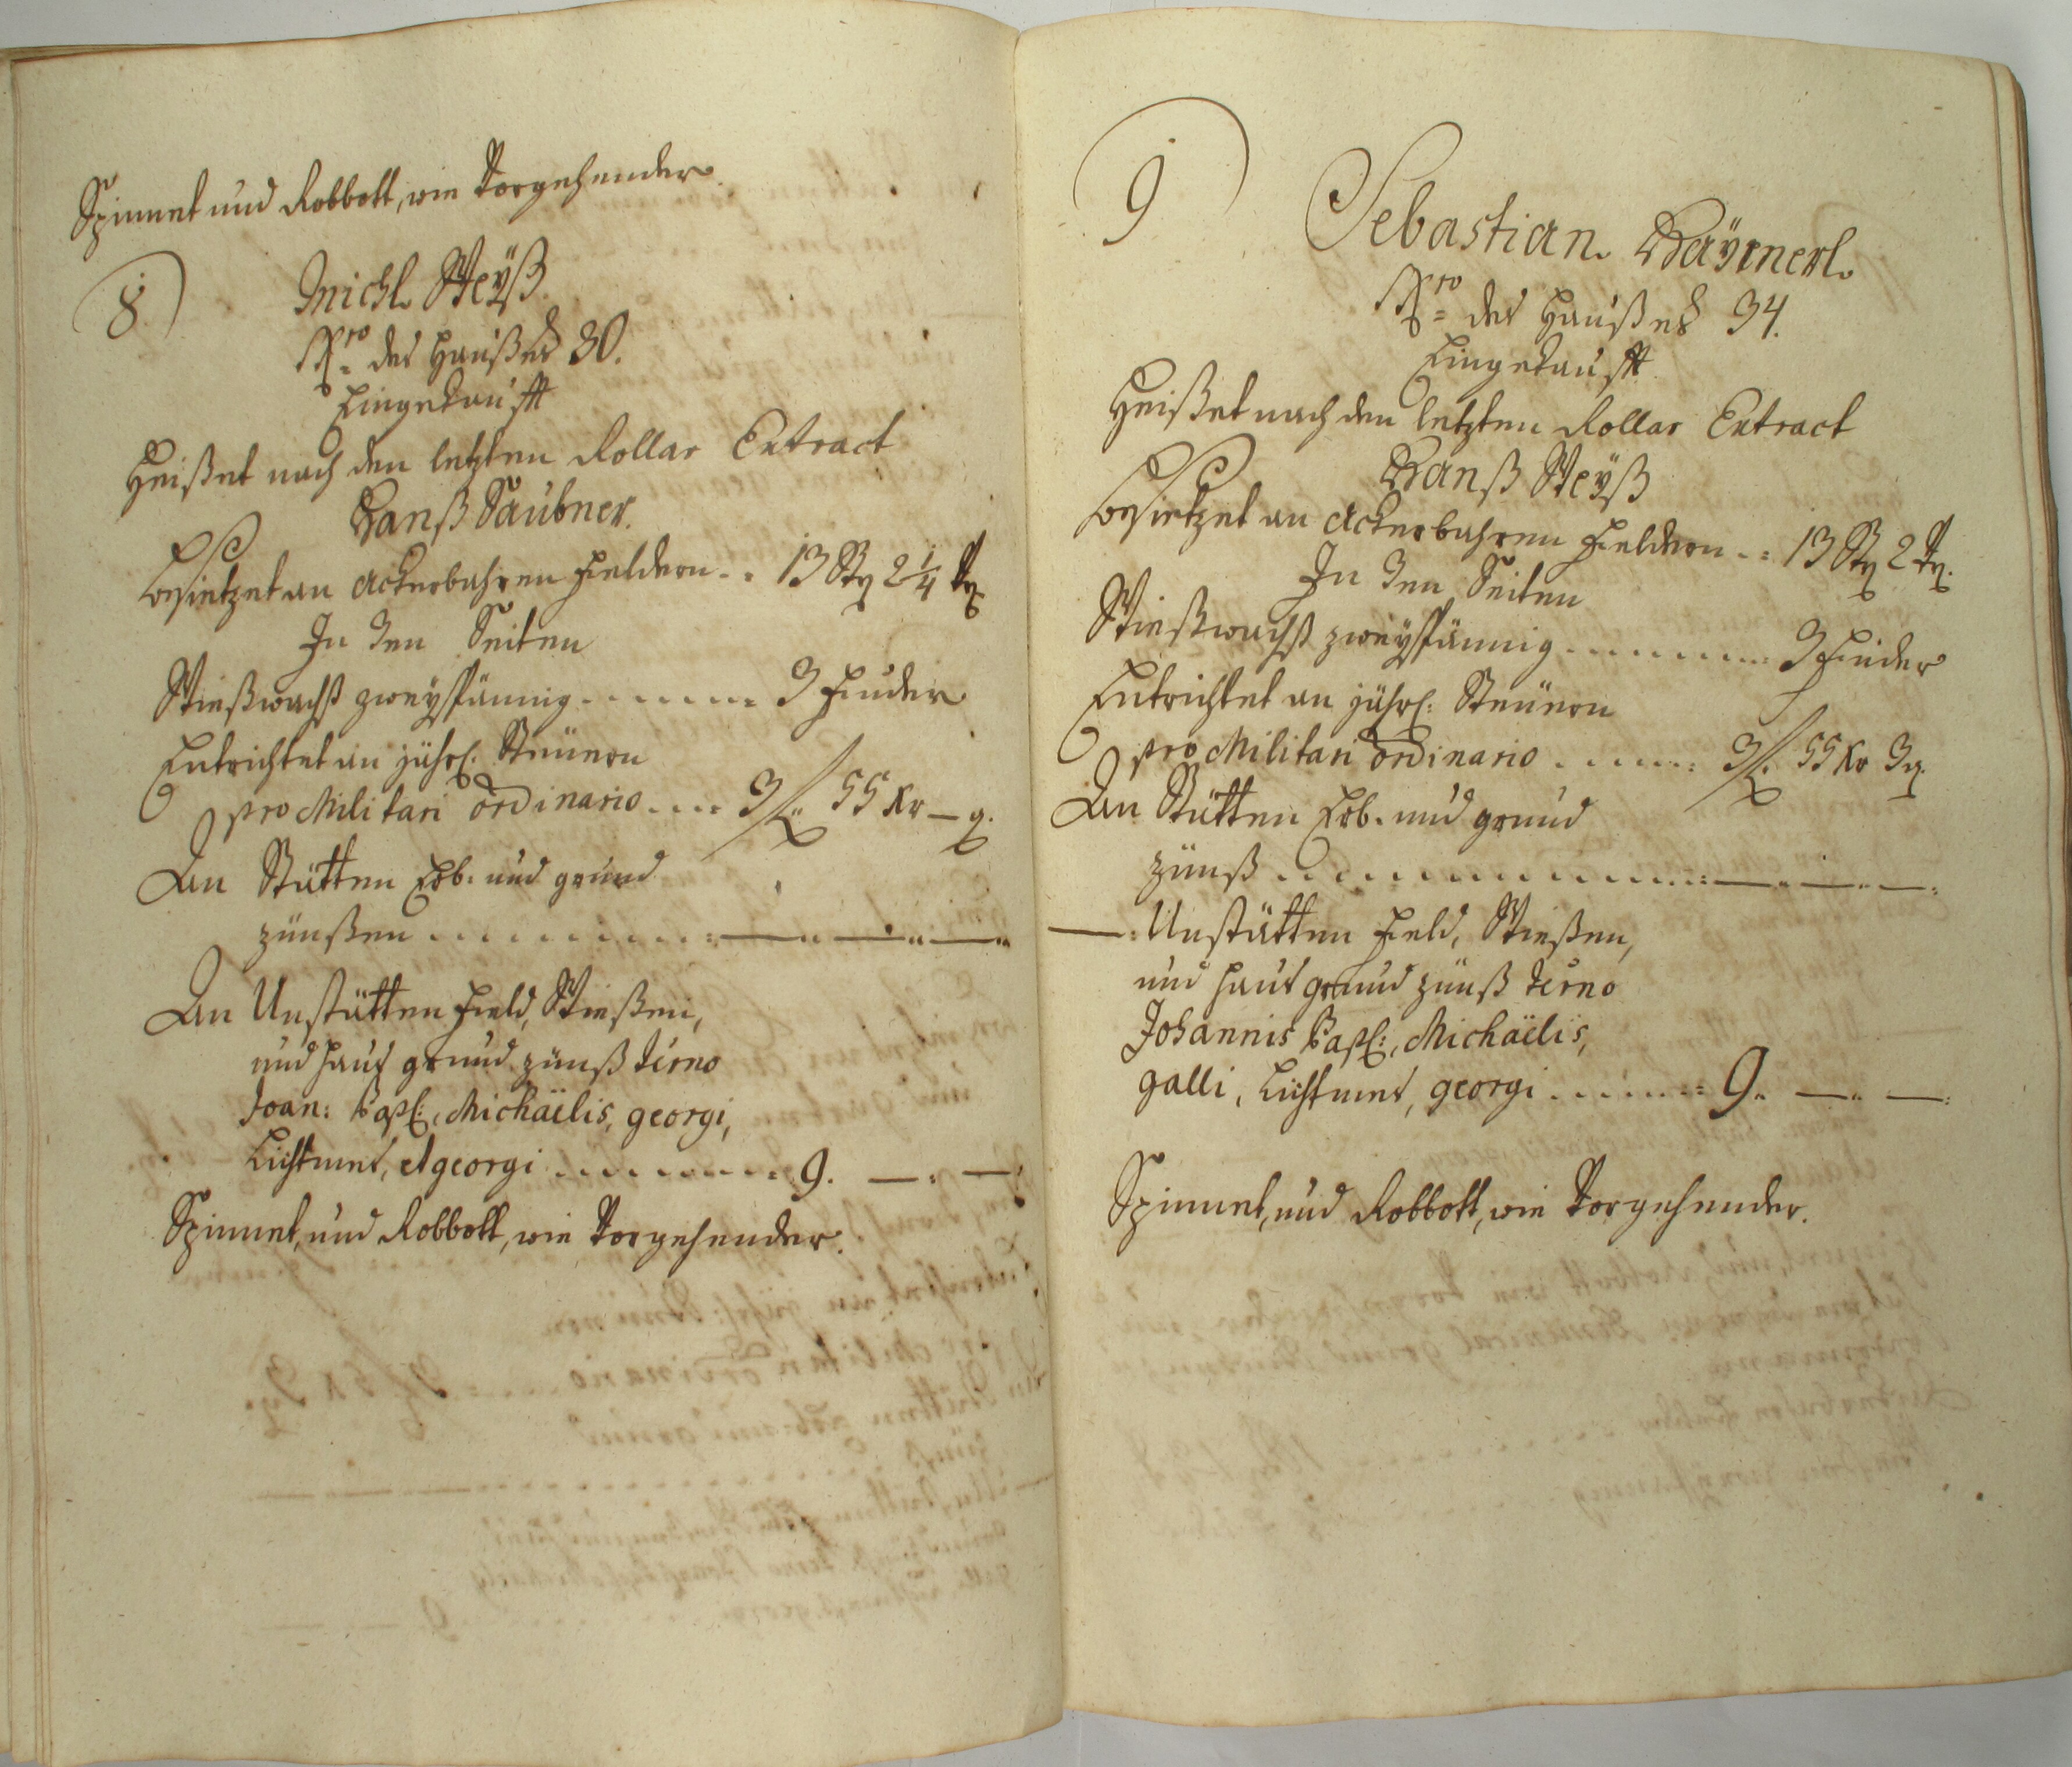 Spinnet und Robbott, wie Vorgehender.
8
Michl Weÿß
Nro des Haußes 30.
Eingekaufft
Heißet nach den letzten Rollar Extract
Hanß Taubner.
Besietzet an Ackerbahren Feldern .. 13 Str 2 1/4 Vr
In den Leiten
Wießwachß zweÿspännig ........ 3 Fuder
Entrichtet an jährl: Steüern
pro Militari ordinario .... 3 fl. 55 Kr — ₰.
An Stätten Erb- und grund
zünßen ........... — " — " —
An Unstätten Field, Wießen,
und Hauß grund zünß Termo
Joan: Bapt:, Michaëlis, georgi,
Lichtmes, et georgi ......... 9. — : —
Spinnet, und Robbott, wie Vorgehender.
9
Sebastian Haÿmerl.
Nro des Haußes 34.
Eingekaufft
Heißet nach den letzten Rollar Extract
Hanß Weÿß
Besietzet an Ackerbahren Feldern .. 13 Str 2 Vr.
In den Leiten
Wießwachß zweÿspännig ......... 3 Fuder
Entrichtet an jährl: Steüern
pro Militari ordinario ...... 3 fl. 55 Kr 3 ₰.
An Stätten Erb- und grund
zünß ................ — " — " —
— : Unstätten Field, Wießen,
und Hauß grund zünß Termo
Johannis Bapt:, Michaëlis,
galli, Lichtmes, georgi ........ 9. — " —
Spinnet, und Robbott, wie Vorgehender.